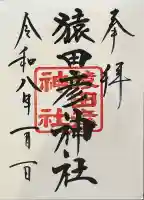 奉拝
猿田彦神社
令和八年一月一日